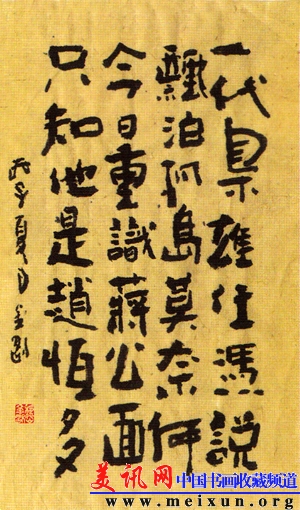 一代梟雄任馮說
飄泊孤島莫奈何
今日重識蔣公面
只知他是趙恒多
丙子夏月
美讯网 中国书画收藏频道
www.meixun.org